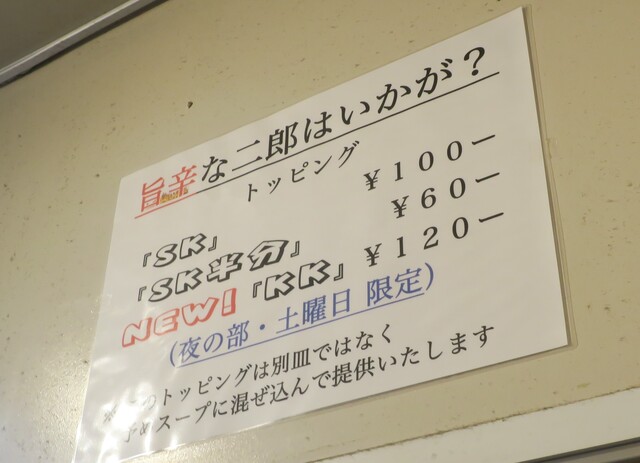 旨辛な二郎はいかが？
トッピング
『SK』 ￥１００ー
『SK半分』 ￥６０ー
NEW！『KK』 ￥１２０ー
（夜の部・土曜日 限定）
※このトッピングは別皿ではなく
予めスープに混ぜ込んで提供いたします